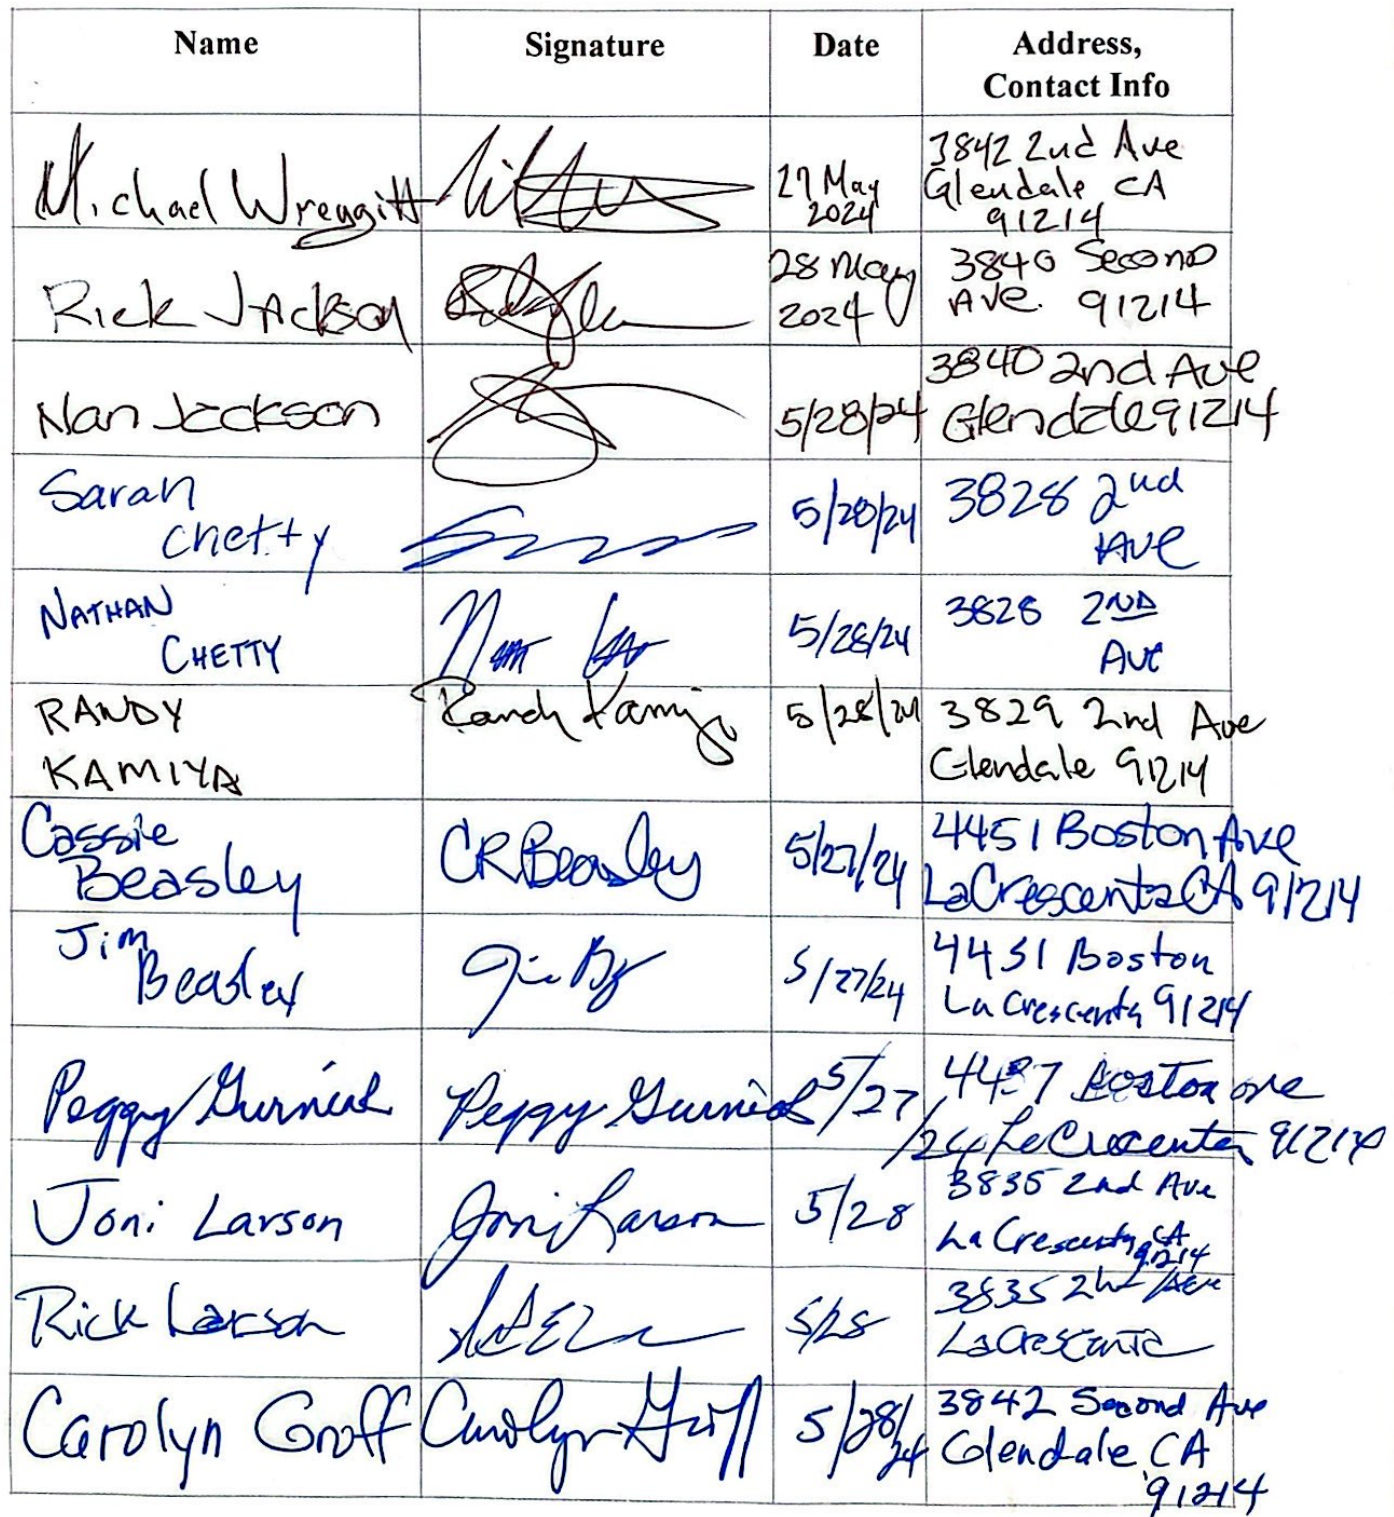 Name Signature Date Address,
Contact Info
Michael Wreggitt 27 May 3842 2nd Ave
2024 Glendale CA
91214
Rick Jackson 28 May 3840 Second
2024 Ave. 91214
Nan Jackson 5/28/24 3840 2nd Ave
Glendale 91214
Sarah 5/28/24 3828 2nd
Chetty Ave
NATHAN 5/28/24 3828 2ND
CHETTY AVE
RANDY Randy Kamiya 5/28/24 3829 2nd Ave
KAMIYA Glendale 91214
Cassie CRBeasley 5/27/24 4451 Boston Ave
Beasley La Crescenta CA 91214
Jim 5/27/24 4451 Boston
Beasley La Crescenta 91214
Peggy Peggy 5/27 Boston ave
/24 La Crescenta 91214
Joni Larson Joni Larson 5/28 3835 2nd Ave
La Crescenta, CA
91214
Rick Larson 5/28 3835 2nd Ave
La Crescenta
Carolyn Groff Carolyn Groff 5/28/ 3842 Second Ave
24 Glendale, CA
91214